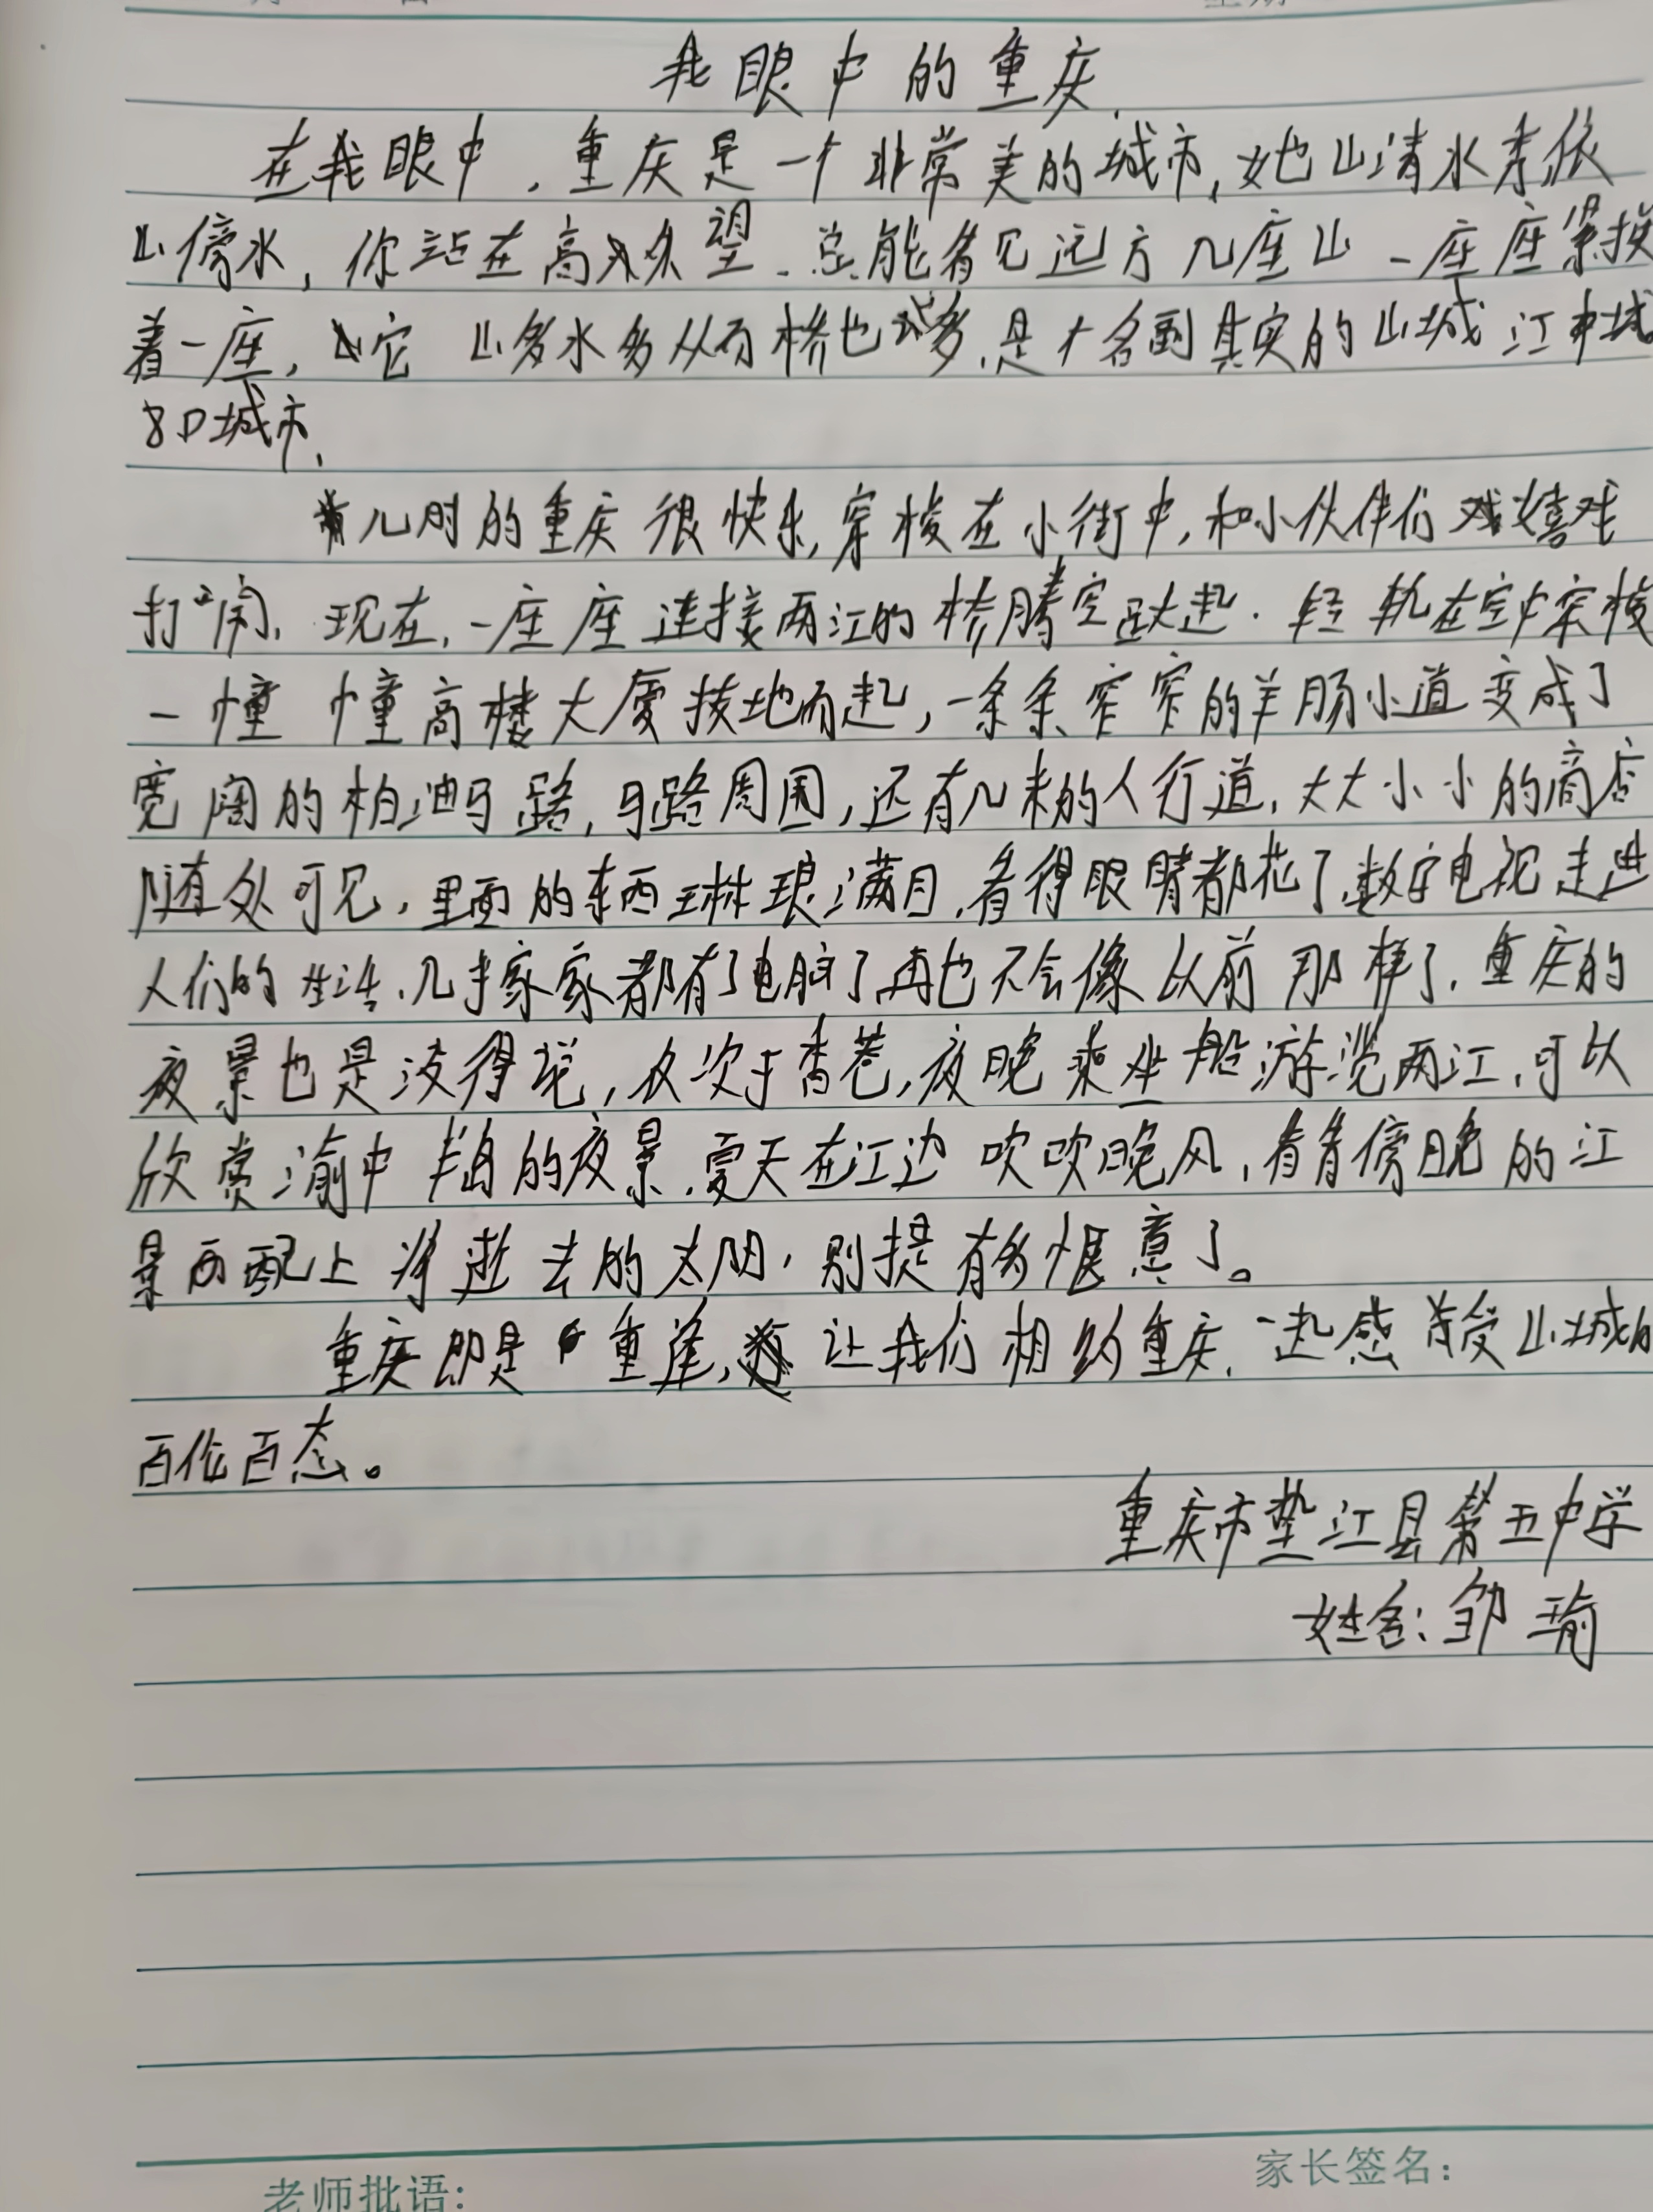 我眼中的重庆
在我眼中，重庆是一个非常美的城市，她山清水秀依
山傍水，你站在高处望，总能看见远方几座山一座座紧挨
着一座，它山多水多从而桥也多，是个名副其实的山城江中城
8D城市，
儿时的重庆很快乐，穿梭在小街中，和小伙伴们嬉戏
打闹，现在，一座座连接两江的桥腾空跃起．轻轨在空中穿梭
一幢幢高楼大厦拔地而起，一条条窄窄的羊肠小道变成了
宽阔的柏油马路，马路周围，还有几米的人行道，大大小小的商店
随处可见，里面的东西琳琅满目，看得眼睛都花了，数字电视走进
人们的生活，几乎家家都有了电脑了，再也不会像以前那样了．重庆的
夜景也是没得说，仅次于香港，夜晚乘坐船游览两江，可以
欣赏渝中半岛的夜景．夏天在江边吹吹晚风，看看傍晚的江
景而配上将逝去的太阳，别提有多惬意了。
重庆即是重逢，让我们相约重庆，一起感受山城的
百作百态。
重庆市垫江县第五中学
姓名：邹瑜
老师批语：
家长签名：